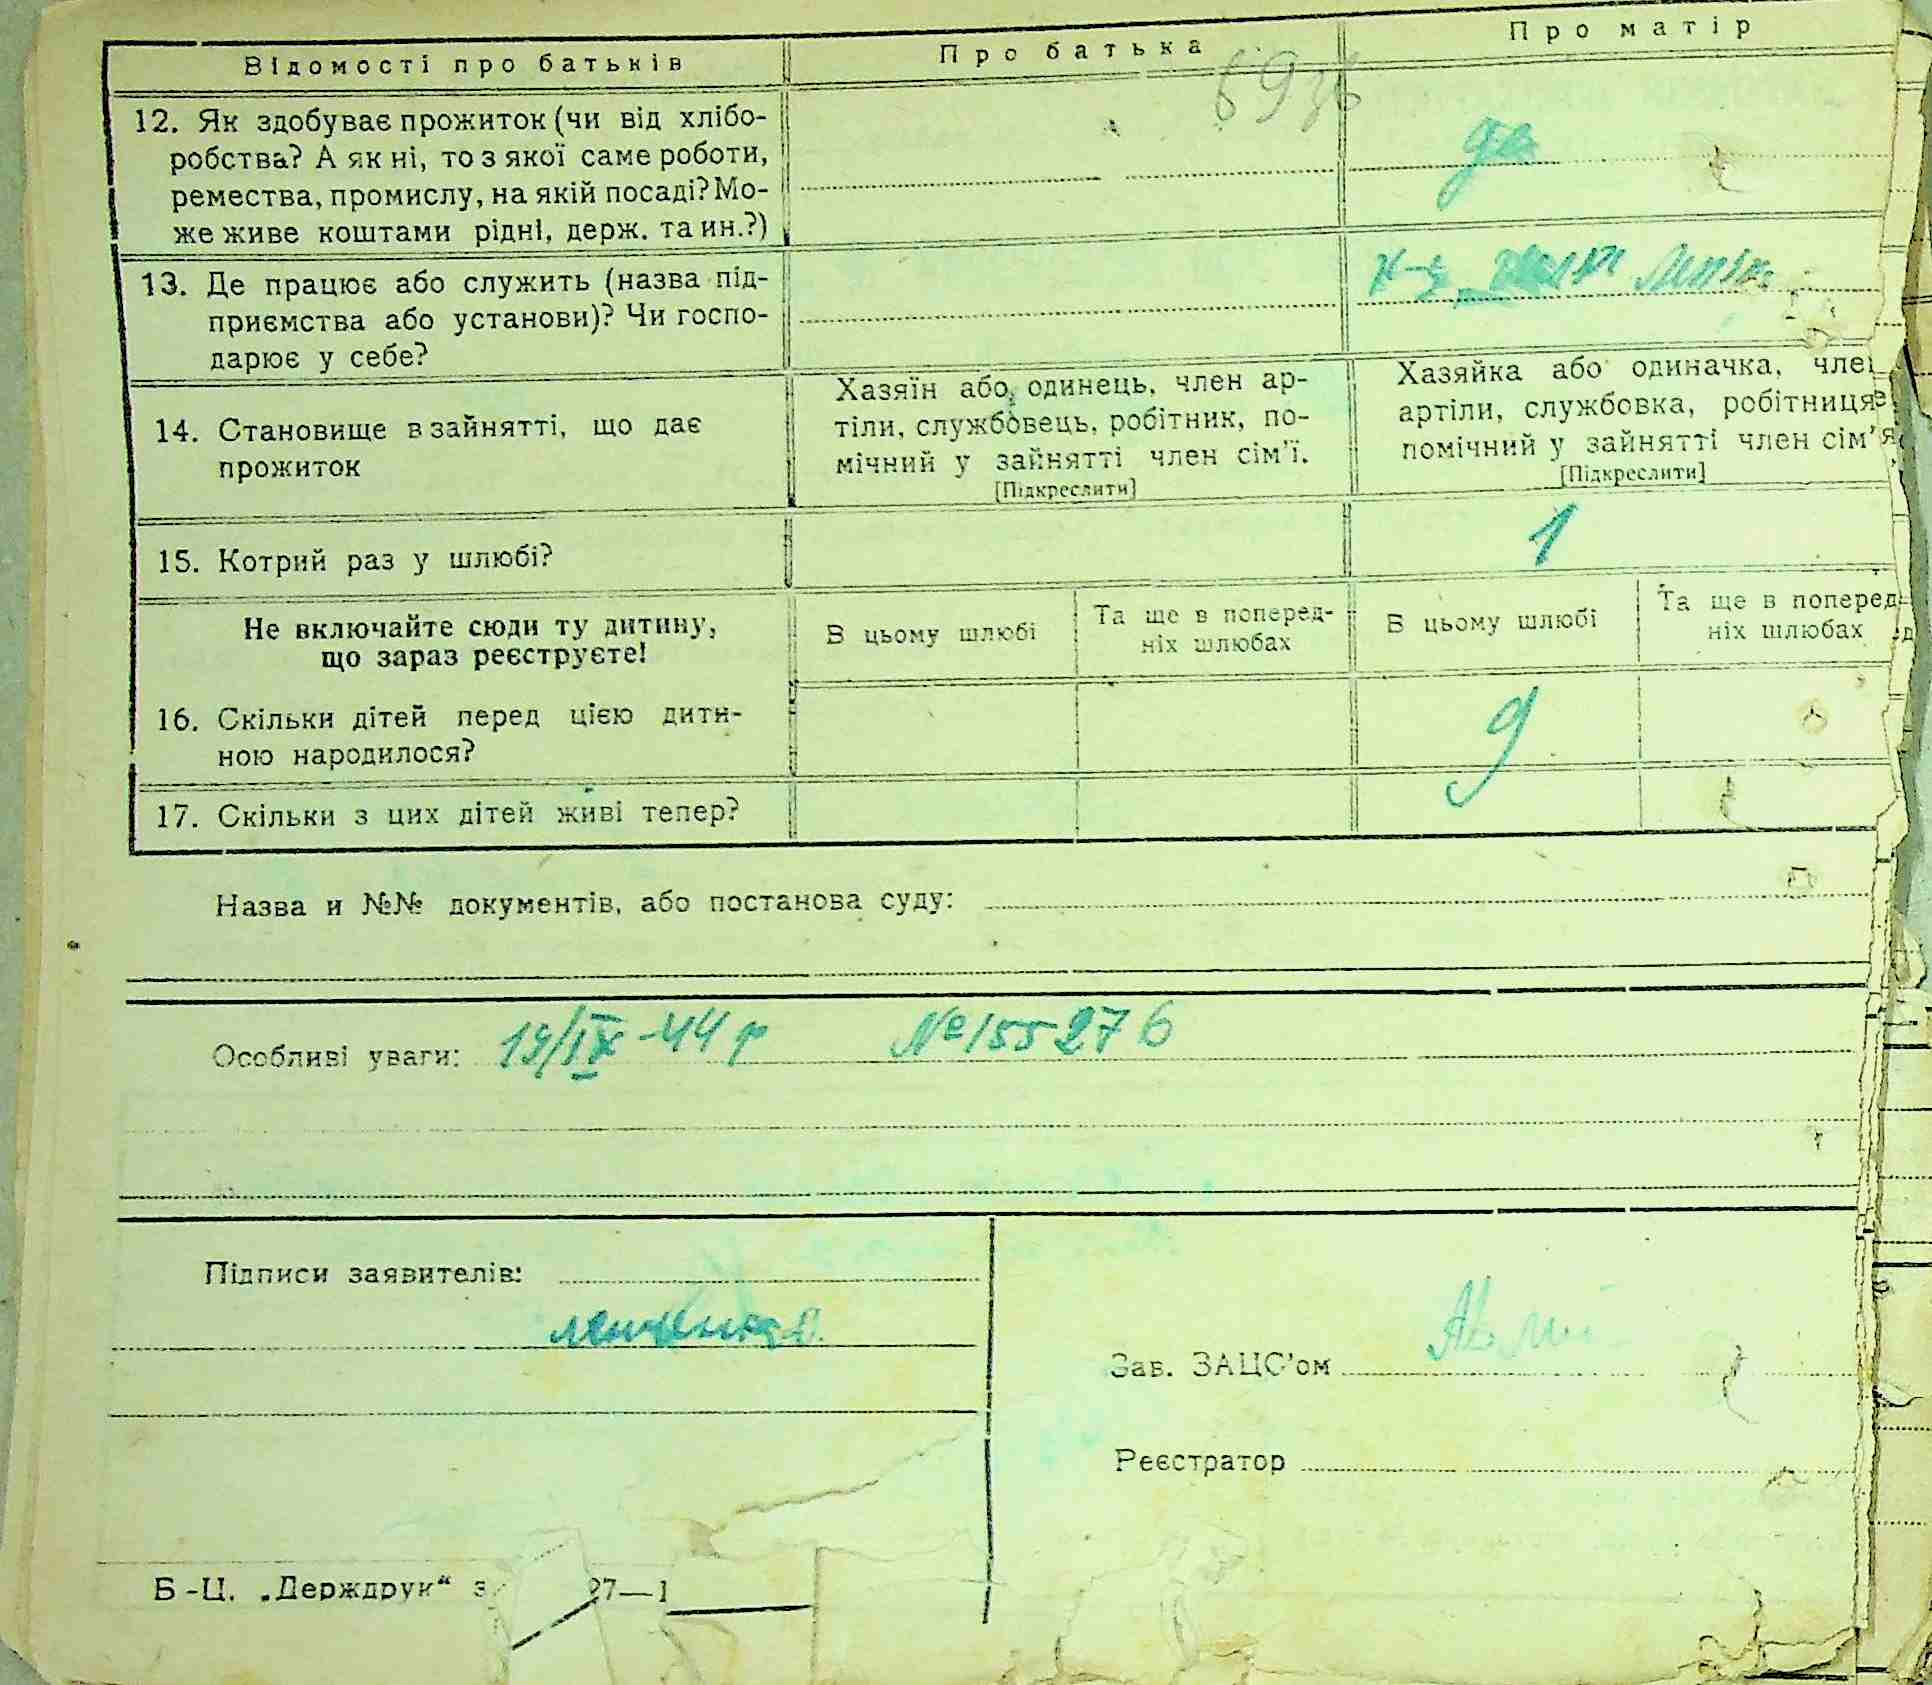 Відомості про батьків
Про батька
Про матір
12. Як здобуває прожиток (чи від хлібо-
робства? А як ні, то з якої саме роботи,
ремества, промислу, на якій посаді? Мо-
же живе коштами рідні, держ. та ин.?)
да
13. Де працює або служить (назва під-
приємства або установи)? Чи госпо-
дарює у себе?
14. Становище в зайнятті, що дає
прожиток
Хазяїн або одинець, член ар-
тіли, службовець, робітник, по-
мічний у зайнятті член сім'ї.
[Підкреслити]
Хазяйка або одиначка, член
артіли, службовка, робітниця
помічний у зайнятті член сім'я
[Підкреслити]
15. Котрий раз у шлюбі?
1
Не включайте сюди ту дитину,
що зараз реєструєте!
В цьому шлюбі
Та ще в поперед-
ніх шлюбах
В цьому шлюбі
Та ще в поперед-
ніх шлюбах
16. Скільки дітей перед цією дити-
ною народилося?
17. Скільки з цих дітей живі тепер?
Назва и №№ документів, або постанова суду:
Особливі уваги: 19/IX-44 р №155276
Підписи заявителів:
Зав. ЗАЦС'ом
Реєстратор
Б-Ц. „Держдрук“ з 27—1